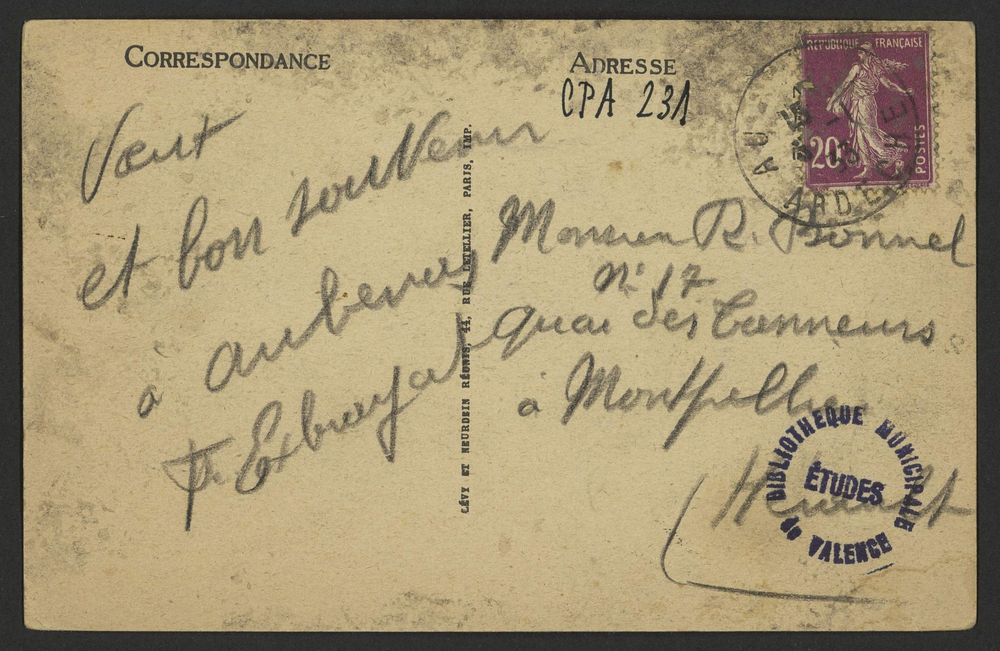 CORRESPONDANCE
Vœux
et bon souvenir
à aubenas
Exbrayat
LÉVY ET NEURDEIN RÉUNIS, 44, RUE LETELLIER, PARIS, IMP.
ADRESSE
CPA 231
RÉPUBLIQUE FRANÇAISE
20c
POSTES
AU
ARDECHE
Monsieur R. Bonnel
N° 17
quai des Tanneurs
à Montpellier
Hérault
BIBLIOTHEQUE MUNICIPALE
ÉTUDES
de VALENCE